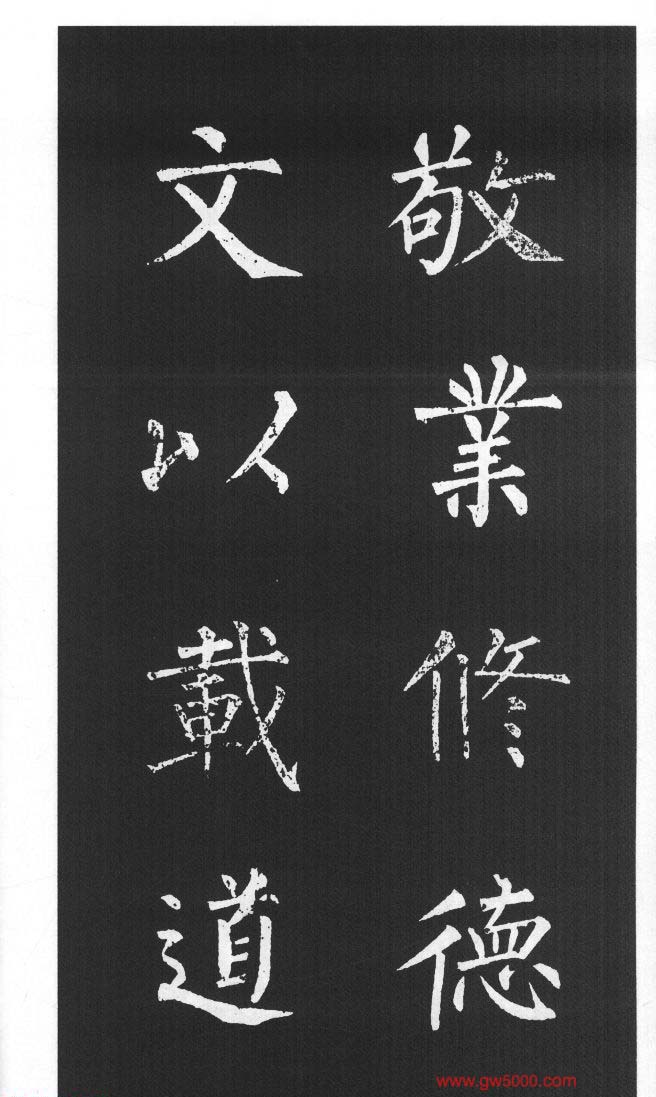 敬業修德
文以載道
www.gw5000.com